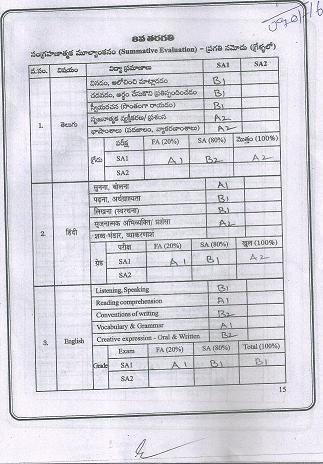 6వ తరగతి
సంగ్రహణాత్మక మూల్యాంకనం (Summative Evaluation) – ప్రగతి నమోదు (గ్రేడ్లలో)
వ.సం. విషయం విద్యా ప్రమాణాలు SA1 SA2
వినడం, ఆలోచించి మాట్లాడడం B1
చదవడం, అర్థం చేసుకొని ప్రతిస్పందించడం B1
స్వీయరచన (సొంతంగా రాయడం) B1
సృజనాత్మక వ్యక్తీకరణ/ ప్రశంస A2
1. తెలుగు భాషాంశాలు (పదజాలం, వ్యాకరణాంశాలు) A2
పరీక్ష FA (20%) SA (80%) మొత్తం (100%)
గ్రేడు SA1 A1 B2 A2
SA2
सुनना, बोलना A1
पढ़ना, अर्थग्राह्यता B1
लिखना (स्वरचना) B1
सृजनात्मक अभिव्यक्ति/ प्रशंसा A2
2. हिंदी शब्द भंडार, व्याकरणांश
परीक्षा FA (20%) SA (80%) कुल (100%)
ग्रेड SA1 A1 B1 A2
SA2
Listening, Speaking B1
Reading comprehension A1
Conventions of writing B2
Vocabulary & Grammar A1
3. English Creative expression - Oral & Written B2
Exam FA (20%) SA (80%) Total (100%)
Grade SA1 A1 B1 B1
SA2
15